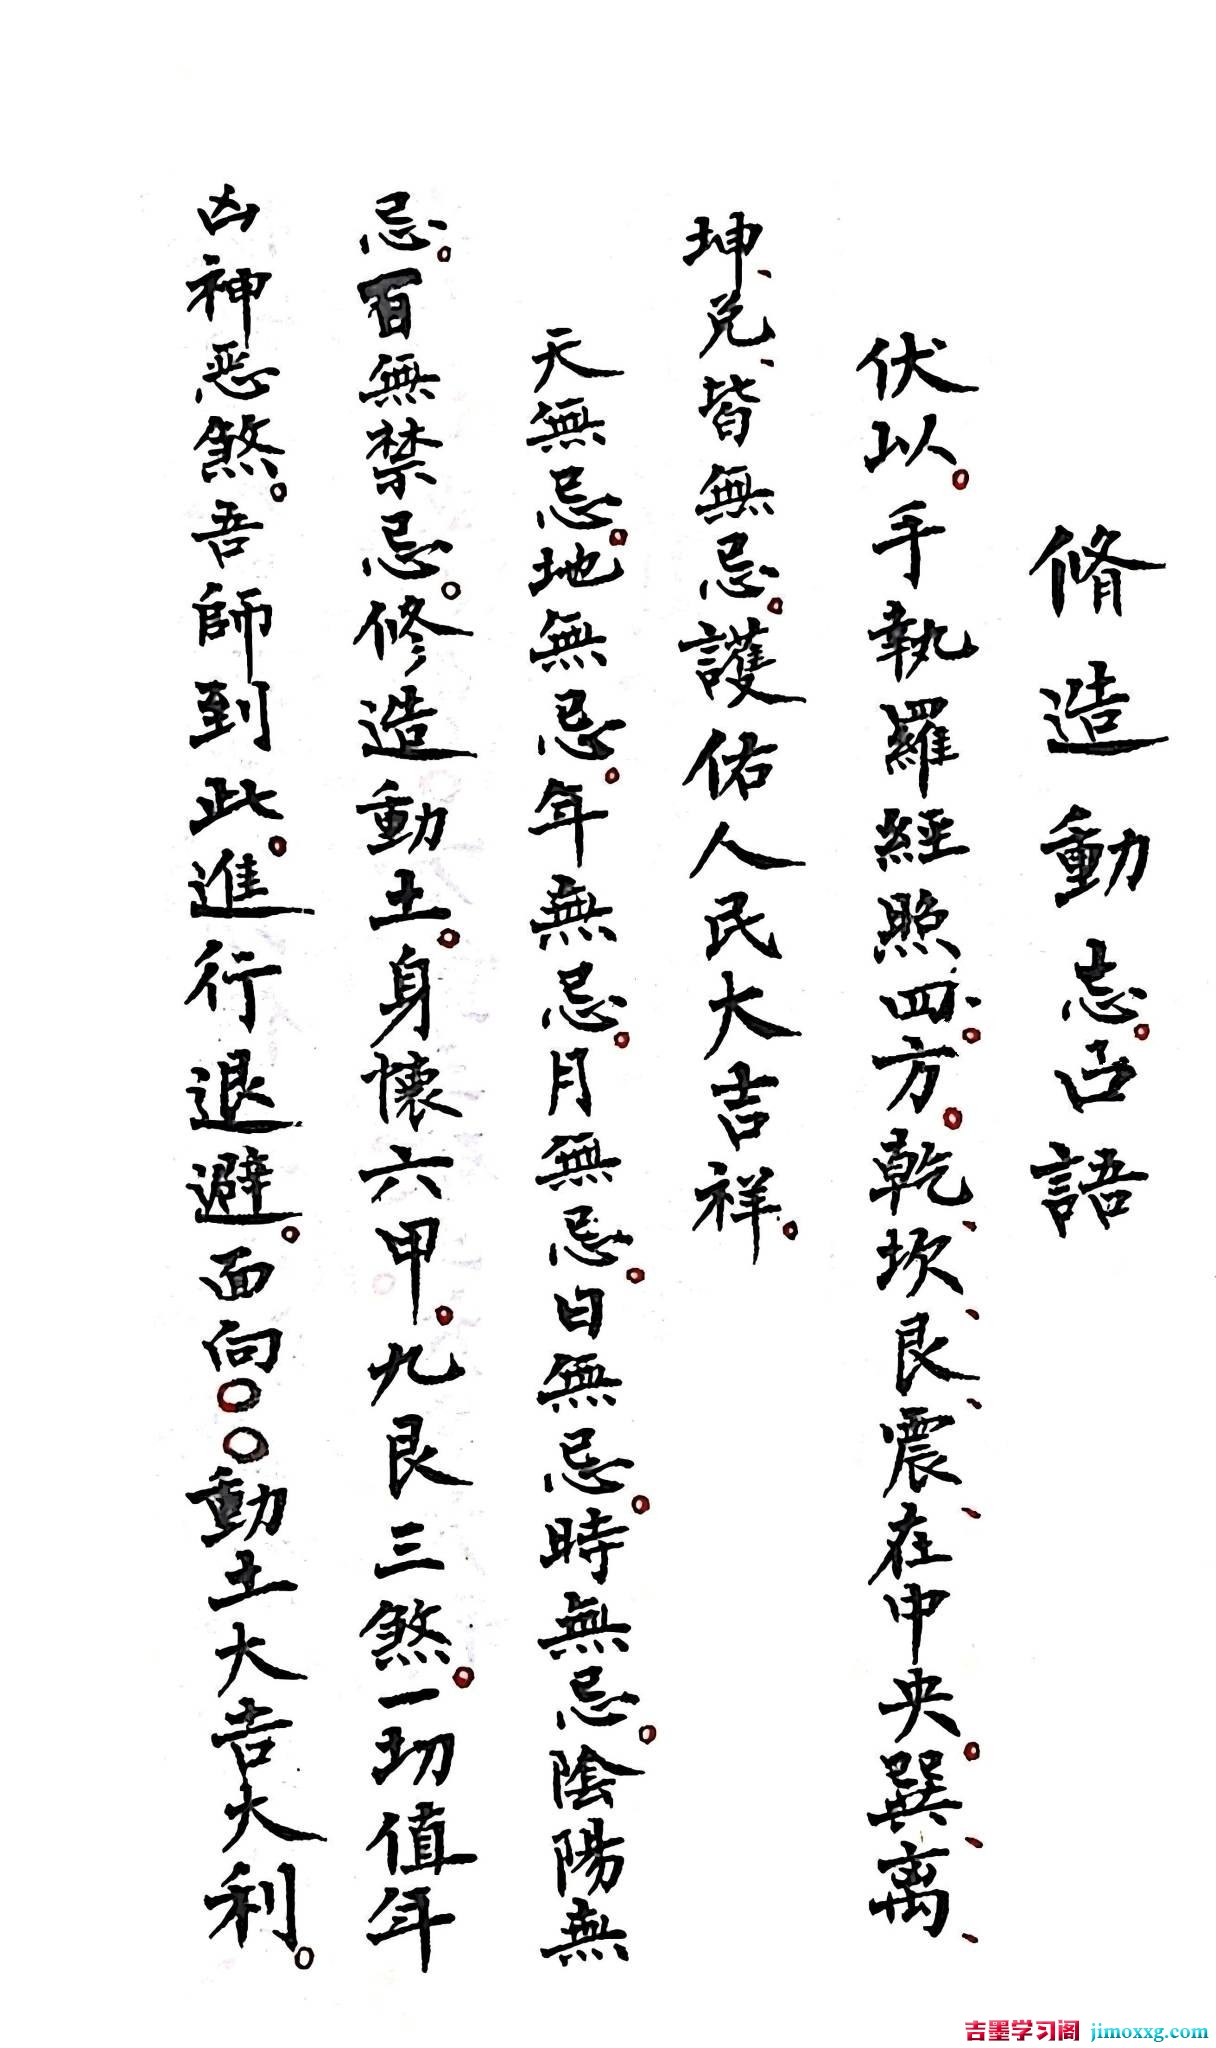 脩造動忌。凸語
伏以。手執羅經照四。方。乾、坎、艮、震、在中央。巽、離、
坤、兌、皆無忌。護佑人民大吉祥。
天無忌。地無忌。年無忌。月無忌。日無忌。時無忌。陰陽無
忌。百無禁忌。修造動土。身懷六甲。九艮三煞。一切值年
凶神惡煞。吾師到此。進行退避。面向〇〇動土大吉大利。
吉墨学习阁 jimoxxg.com